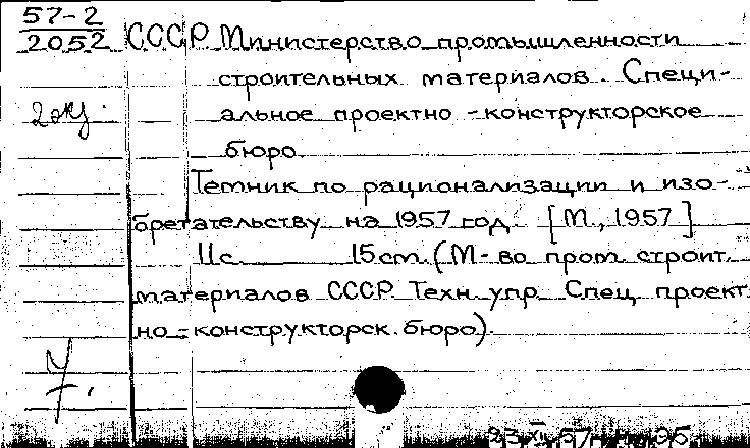 57-2
2052
СССР Министерство промышленности
строительных материалов. Специ-
2 экз.
альное проектно-конструкторское
бюро.
Темник по рационализации и изо-
бретательству на 1957 год. [М., 1957]
11 с. 15 см. (М-во пром. строит.
материалов СССР. Техн. упр. Спец. проект
но-конструкторск. бюро).